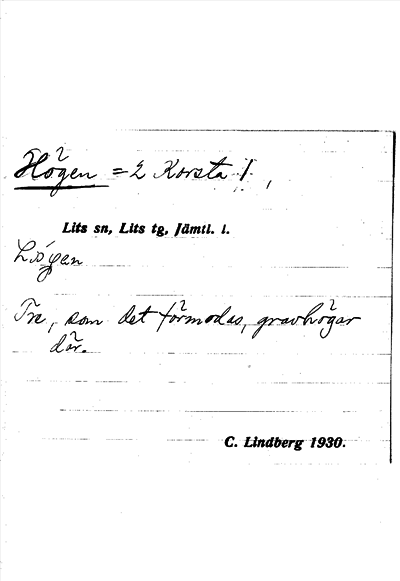 Högen = 2 Korsta 1.
Lits sn, Lits tg, Jämtl. l.
Tre, som det förmodas, gravhögar
där.
C. Lindberg 1930.